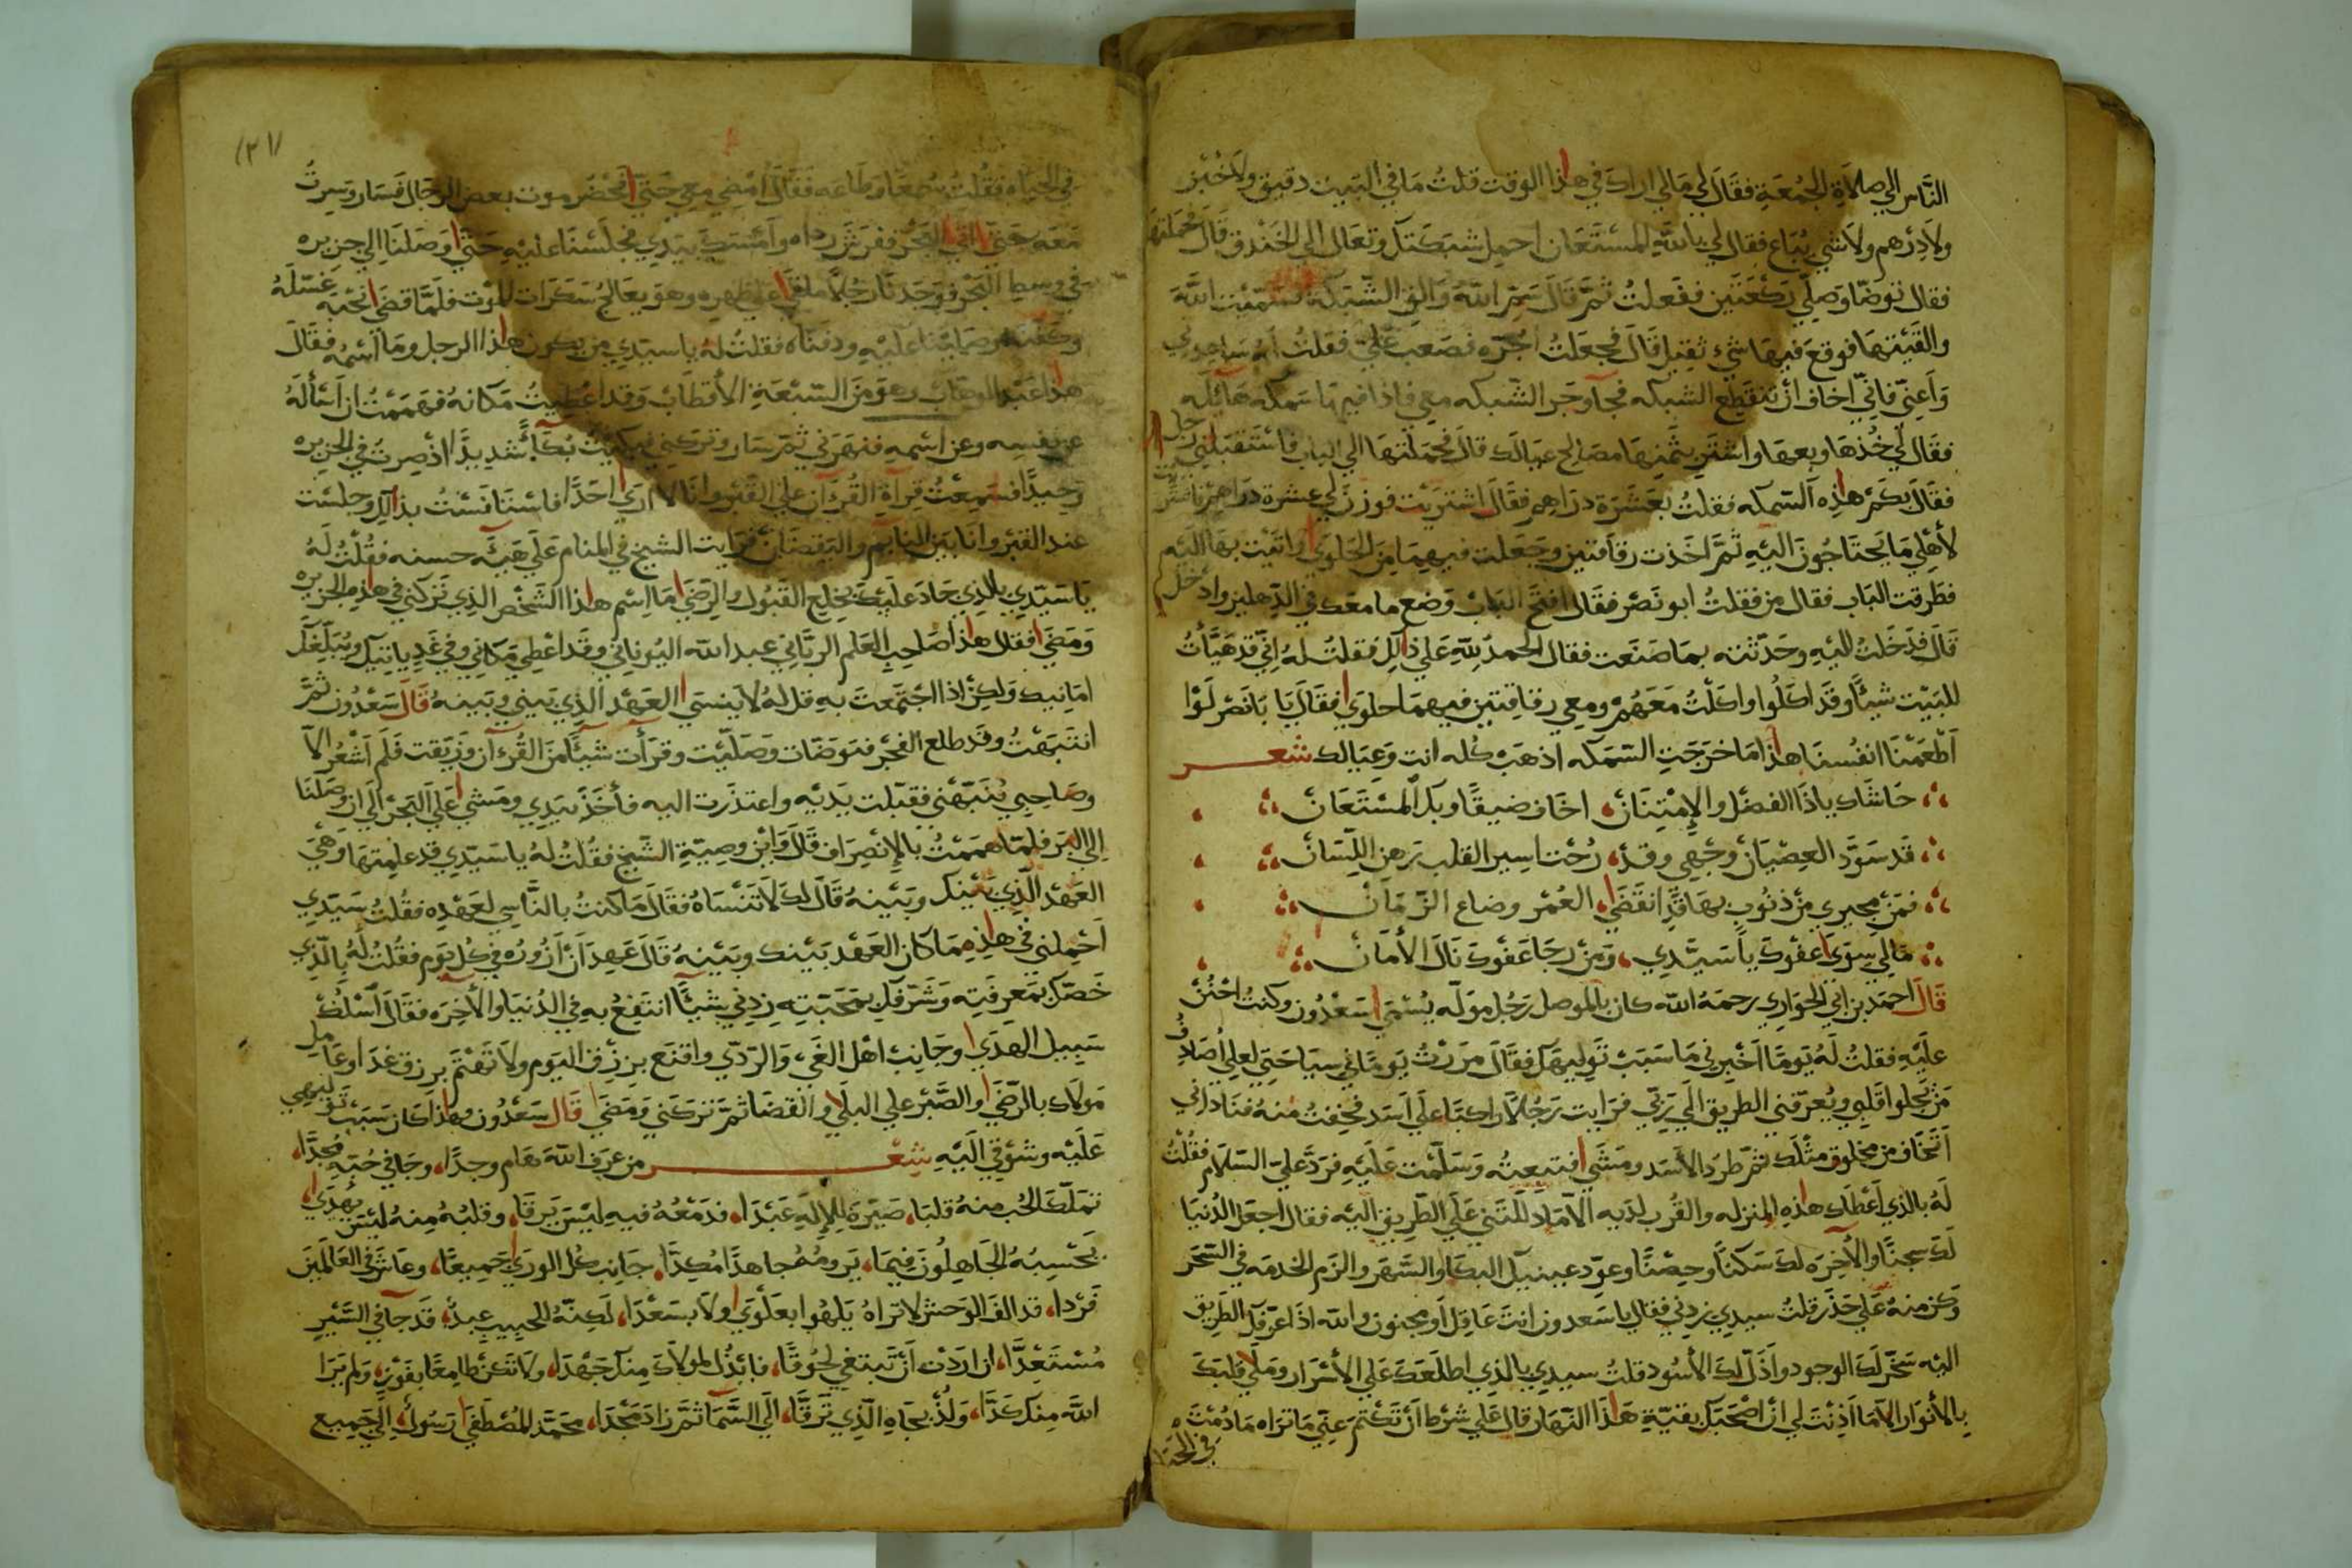 الناس الي صلاة الجمعة فقال لي مالي اراك في هذا الوقت قلت ما في البيت دقيق ولا خبز
ولا درهم ولا شي يباع فقال لي بالله المستعان احمل شبكتك وتعال الي الخندق قال فحملتها
فقال توضا وصلي ركعتين ففعلت ثم قال سم الله والق الشبكة فسميت الله
والقيتها فوقع فيها شيء ثقيل قال فجعلت اجره فصعب علي فقلت له ساعدني
واعني فاني اخاف ان تنقطع الشبكه فجآ وجر الشبكه معي فاذا فيها سمكه هائله
فقال لي خذها وبعها واشتر بثمنها مصالح عيالك قال فحملتها الي الباب فاستقبلني رجل
فقال بكم هاذه السمكه فقلت بعشرة دراهم فقال اشتريت فوزن لي عشرة دراهم فاشتريت
لأهلي ما يحتاجون اليه ثم اخذت رقاقتين وجعلت فيهما من الحلوي واتيت بها اليه
فطرقت الباب فقال من فقلت ابو نصر فقال افتح الباب وضع ما معك في الدهليز وادخل
قال فدخلت اليه وحدثته بما صنعت فقال الحمد لله علي ذالك فقلت له اني قد هيأت
للبيت شيئا وقد اكلوا واكلت معهم ومعي رقاقتين فيهما حلوي فقال يا با نصر لوا
اطعمنا انفسنا هذا ما خرجت السمكه اذهب كله انت وعيالك شعر
حاشاك ياذا الفضل والإمتنان، اخاف ضيقا وبك المستعان
قد سود العصيان وجهي وقد، رحت اسير القلب رهن اللسان
فمن مجيري من ذنوب بها قد انقضي، العمر وضاع الزمان
مالي سوي عفوك يا سيدي، ومن رجا عفوك نال الأمان
قال احمد بن ابي الحواري رحمه الله كان بالموصل رجل موله يسمي سعدون وكنت احنن
عليه فقلت له يوما اخبرني ما سبب توليهك فقال مررت يوما في سياحتي لعلي اصادف
من يجلوا قلبي ويعرفني الطريق الي ربي فرايت رجلا راكبا علي اسد فخفت منه فناداني
اتخاف من مخلوق مثلك ثم طرد الأسد ومشي فتبعته وسلمت عليه فرد علي السلام فقلت
له بالذي اعطاك هذه المنزله والقرب لديه الا ما دللتني علي الطريق اليه فقال اجعل الدنيا
لك سجنا والآخره لك سكنا وحصنا وعود عينيك البكا والسهر والزم الخدمه في السحر
وكن منه علي حذر قلت سيدي زدني فقال يا سعدون انت عاقل او مجنون والله اذا عرفك الطريق
اليه سخر لك الوجود واذل لك الأسود قلت سيدي بالذي اطلعك علي الأسرار وملي قلبك
بالأنوار الا ما اذنت لي ان اصحبك بقية هذا النهار قال علي شرط ان تكتم عني ما تراه ما دمت
في الحياه فقلت سمعا وطاعه فقال امضي معي حتي نحضر موت بعض الرجال فسار وسرت
معه حتي اتي البحر ففرش رداه وامسك بيدي فجلسنا عليه حتي وصلنا الي جزيره
في وسط البحر فوجدنا رجلا ملقي علي ظهره وهو يعالج سكرات الموت فلما قضي نحبه غسله
وكفنه وصلينا عليه ودفناه فقلت له يا سيدي من يكون هذا الرجل وما اسمه فقال
هذا عبد الوهاب وهو من السبعة الأقطاب وقد اعطيت مكانه فهممت ان أسأله
عن نفسه وعن اسمه فنهرني ثم سار وتركني فبكيت بكآء شديدا اذ صرت في الجزيره
وحيدا فسمعت قرآة القرآن علي القبر وانا لا اري احدا فاستانست بذالك وجلست
عند القبر وانا بين النايم واليقضان فرايت الشيخ في المنام علي هيئه حسنه فقلت له
يا سيدي بالذي جاد عليك بخلع القبول والرضي ما اسم هذا الشخص الذي تركني في هذه الجزيره
ومضي فقال هذا صاحب العلم الرباني عبد الله اليوناني وقد اعطي مكاني وفي غد ياتيك ويبلغك
امانيك ولكن اذا اجتمعت به قل له لا ينسي العهد الذي بيني وبينه قال سعدون ثم
انتبهت وقد طلع الفجر فتوضات وصليت وقرأت شيئا من القرءان وزيقت فلم اشعر الا
وصاحبي ينبهني فقبلت يديه واعتذرت اليه فأخذ بيدي ومشي علي البحر الي ان وصلنا
الي البر فلما هممت بالإنصراف قال واين وصية الشيخ فقلت له يا سيدي قد علمتها وهي
العهد الذي بينك وبينه قال لك لا تنساه فقال ما كنت بالناسي لعهده فقلت سيدي
احملني في هذه مما كان العهد بينك وبينه قال عهد ان ازوره في كل يوم فقلت له بالذي
خصك بمعرفته وشرفك بمحبته زدني شيئا انتفع به في الدنيا والآخره فقال اسلك
سبيل الهدي وجانب اهل الغي والردي واقنع برزق اليوم ولا تهتم برزق غد وعامل
مولاك بالرضي والصبر علي البلا والقضا ثم تركني ومضي قال سعدون وهاذا كان سبب توليهي
عليه وشوقي اليه شعر من عرف الله هام وجدا، وجا في حبه مجدا،
تملك الحب منه قلبا، صيره للإله عبدا، فدمعه فيه ليس يرقا، وقلبه منه ليس يهدي،
يحسبه الجاهلون فيما، يرومه مجاهدا مكدا، جانب كل الوري جميعا، وعاش في العالمين
فردا، قد الف الوحش لا تراه يلهوا بعلوي ولا بسعدا، لكنه للحبيب عبد، قد جآ في السير
مستعدا، ان اردت ان تبتغي لحوقا، فابذل لمولاك منك جهدا، ولا تكن طامعا بفوز، ولم يرا
الله منك كدا، ولذ بجاه الذي ترقا، الي السما ثم زاد مجدا، محمد المصطفي رسول، الي جميع